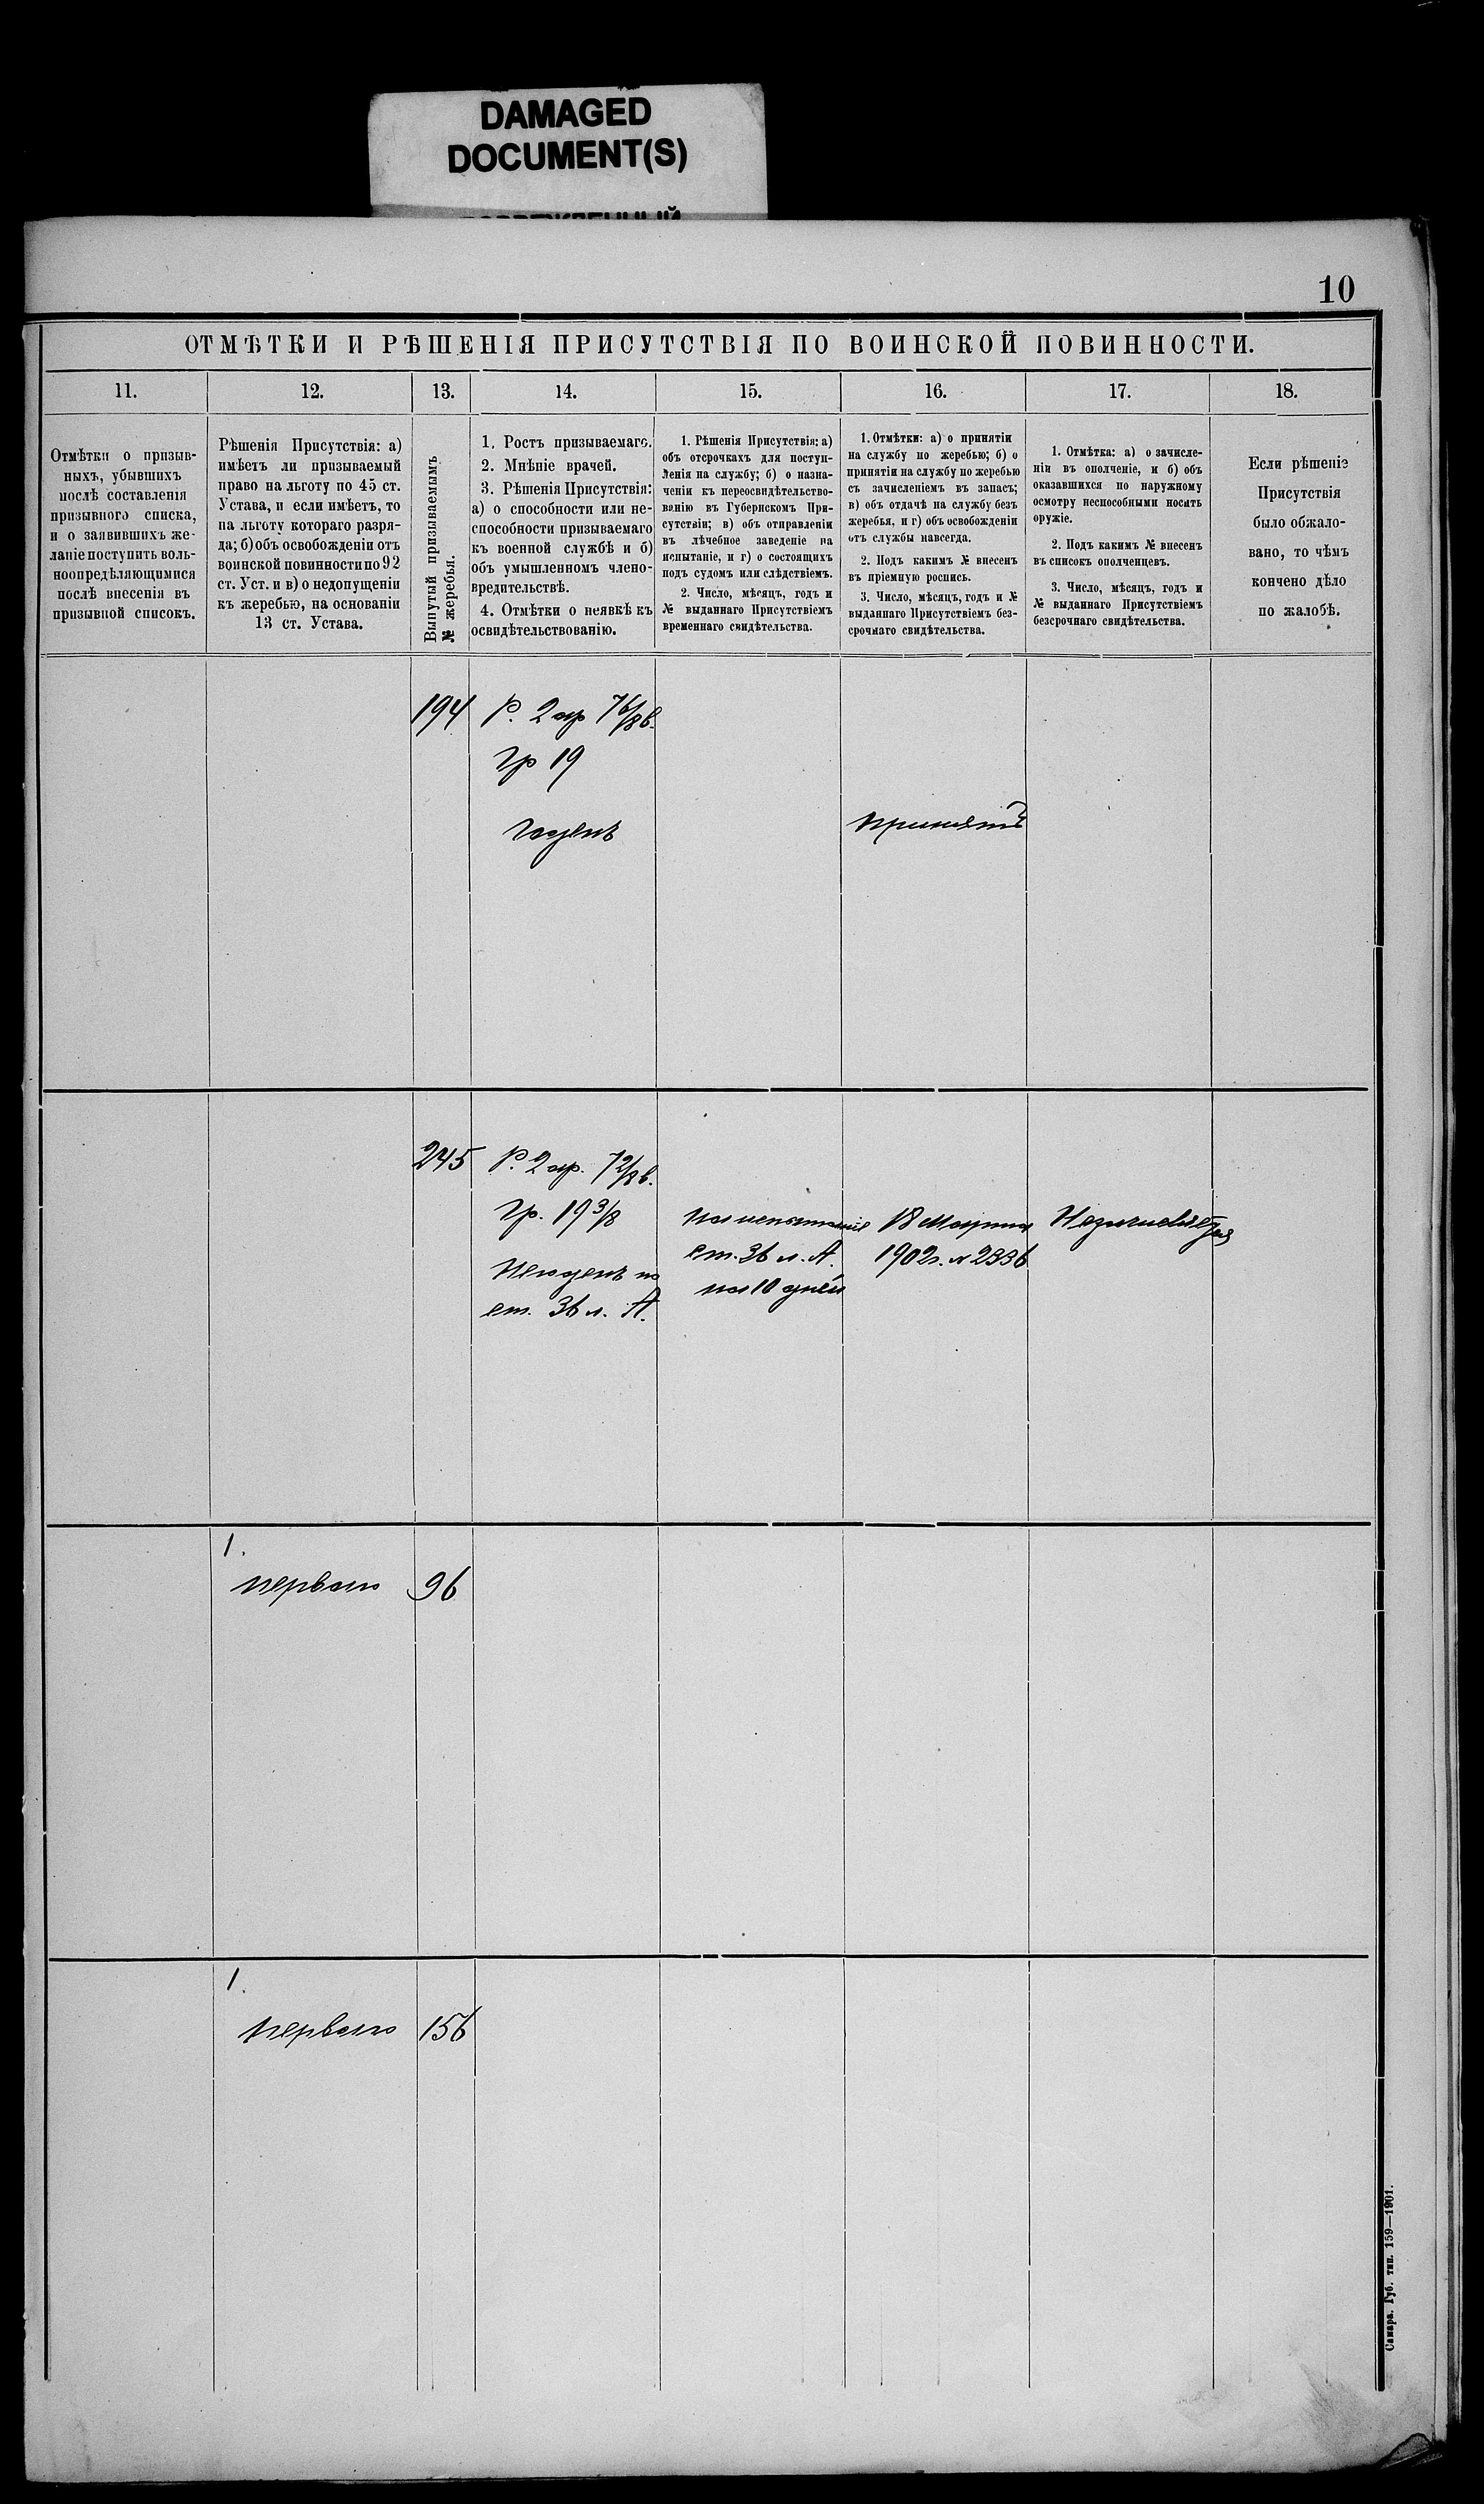 DAMAGED
DOCUMENT(S)
10
ОТМѢТКИ И РѢШЕНІЯ ПРИСУТСТВІЯ ПО ВОИНСКОЙ ПОВИННОСТИ.
11.
12.
13.
14.
15.
16.
17.
18.
Отмѣтки о призыв-
ныхъ, убывшихъ
послѣ составленія
призывного списка,
и о заявившихъ же-
ланіе поступить воль-
ноопредѣляющимися
послѣ внесенія въ
призывной списокъ.
Рѣшенія Присутствія: а)
имѣетъ ли призываемый
право на льготу по 45 ст.
Устава, и если имѣетъ, то
на льготу котораго разря-
да; б) объ освобожденіи отъ
воинской повинности по 92
ст. Уст. и в) о недопущеніи
къ жеребью, на основаніи
13 ст. Устава.
Вынутый призываемымъ
№ жеребья.
1. Ростъ призываемаго.
2. Мнѣніе врачей.
3. Рѣшенія Присутствія:
а) о способности или не-
способности призываемаго
къ военной службѣ и б)
объ умышленномъ члено-
вредительствѣ.
4. Отмѣтки о неявкѣ къ
освидѣтельствованію.
1. Рѣшенія Присутствія: а)
объ отсрочкахъ для поступ-
ленія на службу; б) о назна-
ченіи къ переосвидѣтельство-
ванію въ Губернскомъ При-
сутствіи; в) объ отправленіи
въ лѣчебное заведеніе на
испытаніе, и г) о состоящихъ
подъ судомъ или слѣдствіемъ.
2. Число, мѣсяцъ, годъ и
№ выданнаго Присутствіемъ
временнаго свидѣтельства.
1. Отмѣтки: а) о принятіи
на службу по жеребью; б) о
принятіи на службу по жеребью
съ зачисленіемъ въ запасъ;
в) объ отдачѣ на службу безъ
жеребья, и г) объ освобожденіи
отъ службы навсегда.
2. Подъ какимъ № внесенъ
въ пріемную роспись.
3. Число, мѣсяцъ, годъ и №
выданнаго Присутствіемъ без-
срочнаго свидѣтельства.
1. Отмѣтка: а) о зачисле-
ніи въ ополченіе, и б) объ
оказавшихся по наружному
осмотру неспособными носить
оружіе.
2. Подъ какимъ № внесенъ
въ списокъ ополченцевъ.
3. Число, мѣсяцъ, годъ и
№ выданнаго Присутствіемъ
безсрочнаго свидѣтельства.
Если рѣшеніе
Присутствія
было обжало-
вано, то чѣмъ
кончено дѣло
по жалобѣ.
194
Р. 2 ар 7 6/8 в.
Гр 19
Годенъ
принятъ
245
Р. 2 ар. 7 2/8 в.
Гр. 19 3/8
Негоденъ по
ст. 36 л. А.
на испытаніе
ст. 36 л. А.
на 10 дней
18 Марта
1902 г. № 2336
1.
перваго
96
1.
перваго
156
Самара. Губ. тип. 159—1901.